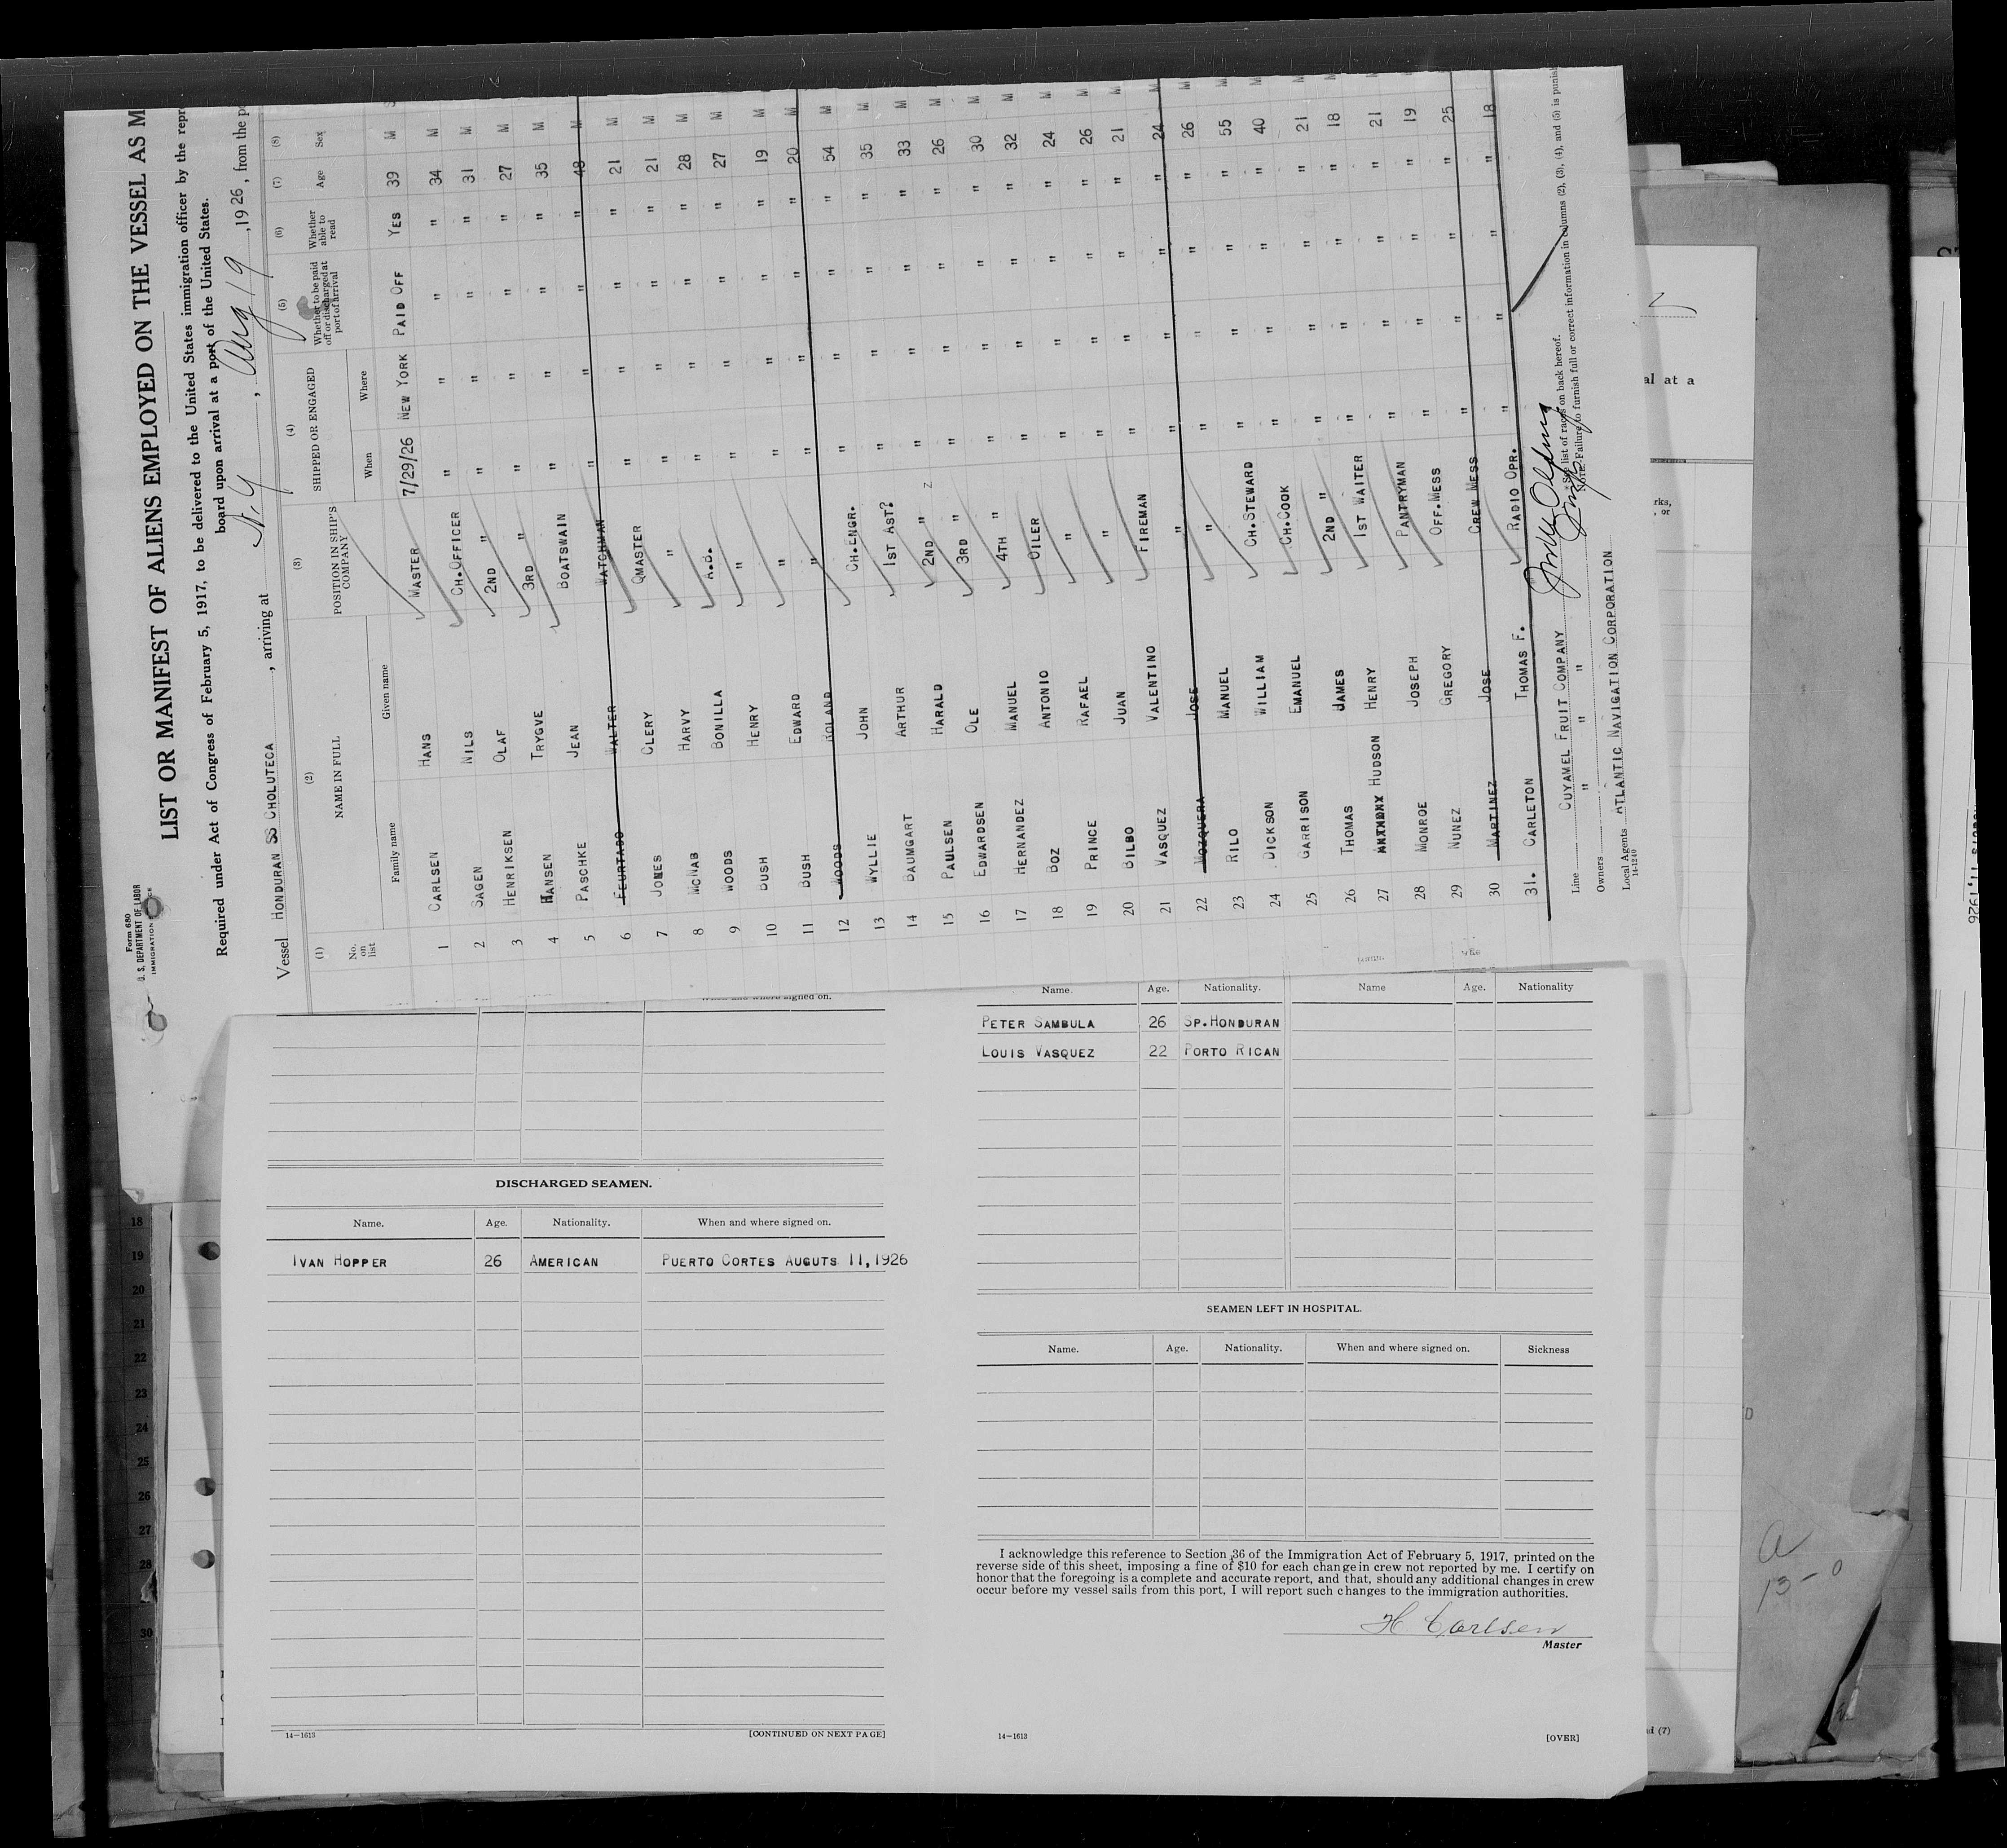 Form 680
U. S. DEPARTMENT OF LABOR
IMMIGRATION
LIST OR MANIFEST OF ALIENS EMPLOYED ON THE VESSEL AS M
Required under Act of Congress of February 5, 1917, to be delivered to the United States immigration officer by the repr
board upon arrival at a port of the United States.
Vessel HONDURAN SS CHOLUTECA, arriving at N.Y, Aug 19, 1926, from the p
(1) (2) (3) (4) (5) (6) (7) (8)
No. on list NAME IN FULL POSITION IN SHIP'S COMPANY SHIPPED OR ENGAGED Whether to be paid off or discharged at port of arrival Whether able to read Age Sex
Family name Given name When Where
1 CARLSEN HANS MASTER 7/29/26 NEW YORK PAID OFF YES 39 M
2 SAGEN NILS CH.OFFICER " " " " 34 M
3 HENRIKSEN OLAF 2ND " " " " " 31 M
4 HANSEN TRYGVE 3RD " " " " " 27 M
5 PASCHKE JEAN BOATSWAIN " " " " 35 M
6 FEURTADO WALTER WATCHMAN " " " " 48 M
7 JONES CLERY QMASTER " " " " 21 M
8 MCNAB HARVY " " " " " 21 M
9 WOODS BONILLA A.B. " " " " 28 M
10 BUSH HENRY " " " " " 27 M
11 BUSH EDWARD " " " " " 19 M
12 WOODS ROLAND " " " " " 20 M
13 WYLLIE JOHN CH.ENGR. " " " " 54 M
14 BAUMGART ARTHUR 1ST AST? " " " " 35 M
15 PAULSEN HARALD 2ND " " " " " 33 M
16 EDWARDSEN OLE 3RD " " " " " 26 M
17 HERNANDEZ MANUEL 4TH " " " " " 30 M
18 BOZ ANTONIO OILER " " " " 32 M
19 PRINCE RAFAEL " " " " " 24 M
20 BILBO JUAN " " " " " 26 M
21 VASQUEZ VALENTINO FIREMAN " " " " 21 M
22 MOZQUERA JOSE " " " " " 24 M
23 RILO MANUEL " " " " " 26 M
24 DICKSON WILLIAM CH.STEWARD " " " " 55 M
25 GARRISON EMANUEL CH.COOK " " " " 40 M
26 THOMAS JAMES 2ND " " " " " 21 M
27 HUDSON HENRY 1ST WAITER " " " " 18 M
28 MONROE JOSEPH PANTRYMAN " " " " 21 M
29 NUNEZ GREGORY OFF.MESS " " " " 19 M
30 MARTINEZ JOSE CREW MESS " " " " 25 M
31. CARLETON THOMAS F. RADIO OPR. " " " " 18 M
Line CUYAMEL FRUIT COMPANY
Owners " " "
Local Agents ATLANTIC NAVIGATION CORPORATION
14-1240
* See list of races on back hereof.
NOTE.—Failure to furnish full or correct information in columns (2), (3), (4), and (5) is punish
When and where signed on.
DISCHARGED SEAMEN.
Name. Age. Nationality. When and where signed on.
IVAN HOPPER 26 AMERICAN PUERTO CORTES AUGUTS 11,1926
14—1613 [CONTINUED ON NEXT PAGE]
Name. Age. Nationality. Name Age. Nationality
PETER SAMBULA 26 SP.HONDURAN
LOUIS VASQUEZ 22 PORTO RICAN
SEAMEN LEFT IN HOSPITAL.
Name. Age. Nationality. When and where signed on. Sickness
I acknowledge this reference to Section 36 of the Immigration Act of February 5, 1917, printed on the
reverse side of this sheet, imposing a fine of $10 for each change in crew not reported by me. I certify on
honor that the foregoing is a complete and accurate report, and that, should any additional changes in crew
occur before my vessel sails from this port, I will report such changes to the immigration authorities.
H Carlsen
Master
14—1613 [OVER]
18
19
20
21
22
23
24
25
26
27
28
30
al at a
d (7)
a
13-0